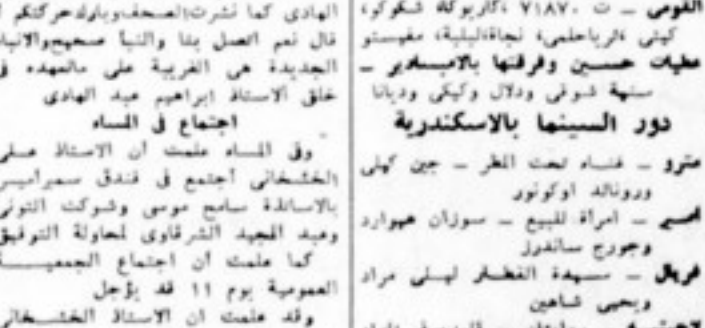 القومى – ت ٧١٨٧٠ ،كاريوكا، شكوكو،
كيتى ،ثرياحلمى، نجاة،ليلية، مفيستو
عطيات حسين وفرقتها بالامباسادير –
سنية شوقى ودلال وكيكى وديانا
دور السينما بالاسكندرية
مترو – غناء تحت المطر – جين كيلى
ورونالد اوكونور
امير – امرأة للبيع – سوزان هيوارد
وجورج ساندرز
فريال – سيدة القطار ليلى مراد
ويحيى شاهين
الهادى كما نشرت الصحف وبارك حركتكم
قال نعم اتصل بنا والنبأ صحيح والانباء
الجديدة هى الغريبة على مالعهده فى
خلق الاستاذ ابراهيم عبد الهادى
اجتماع فى المساء
وفى المساء علمت أن الاستاذ على
الخشخانى أجتمع فى فندق سميراميس
بالاساتذة سامح موسى وشوكت التونى
وعبد المجيد الشرقاوى لمحاولة التوفيق
كما علمت أن اجتماع الجمعية
العمومية يوم ١١ قد يؤجل
وقد علمت ان الاستاذ الخشخانى